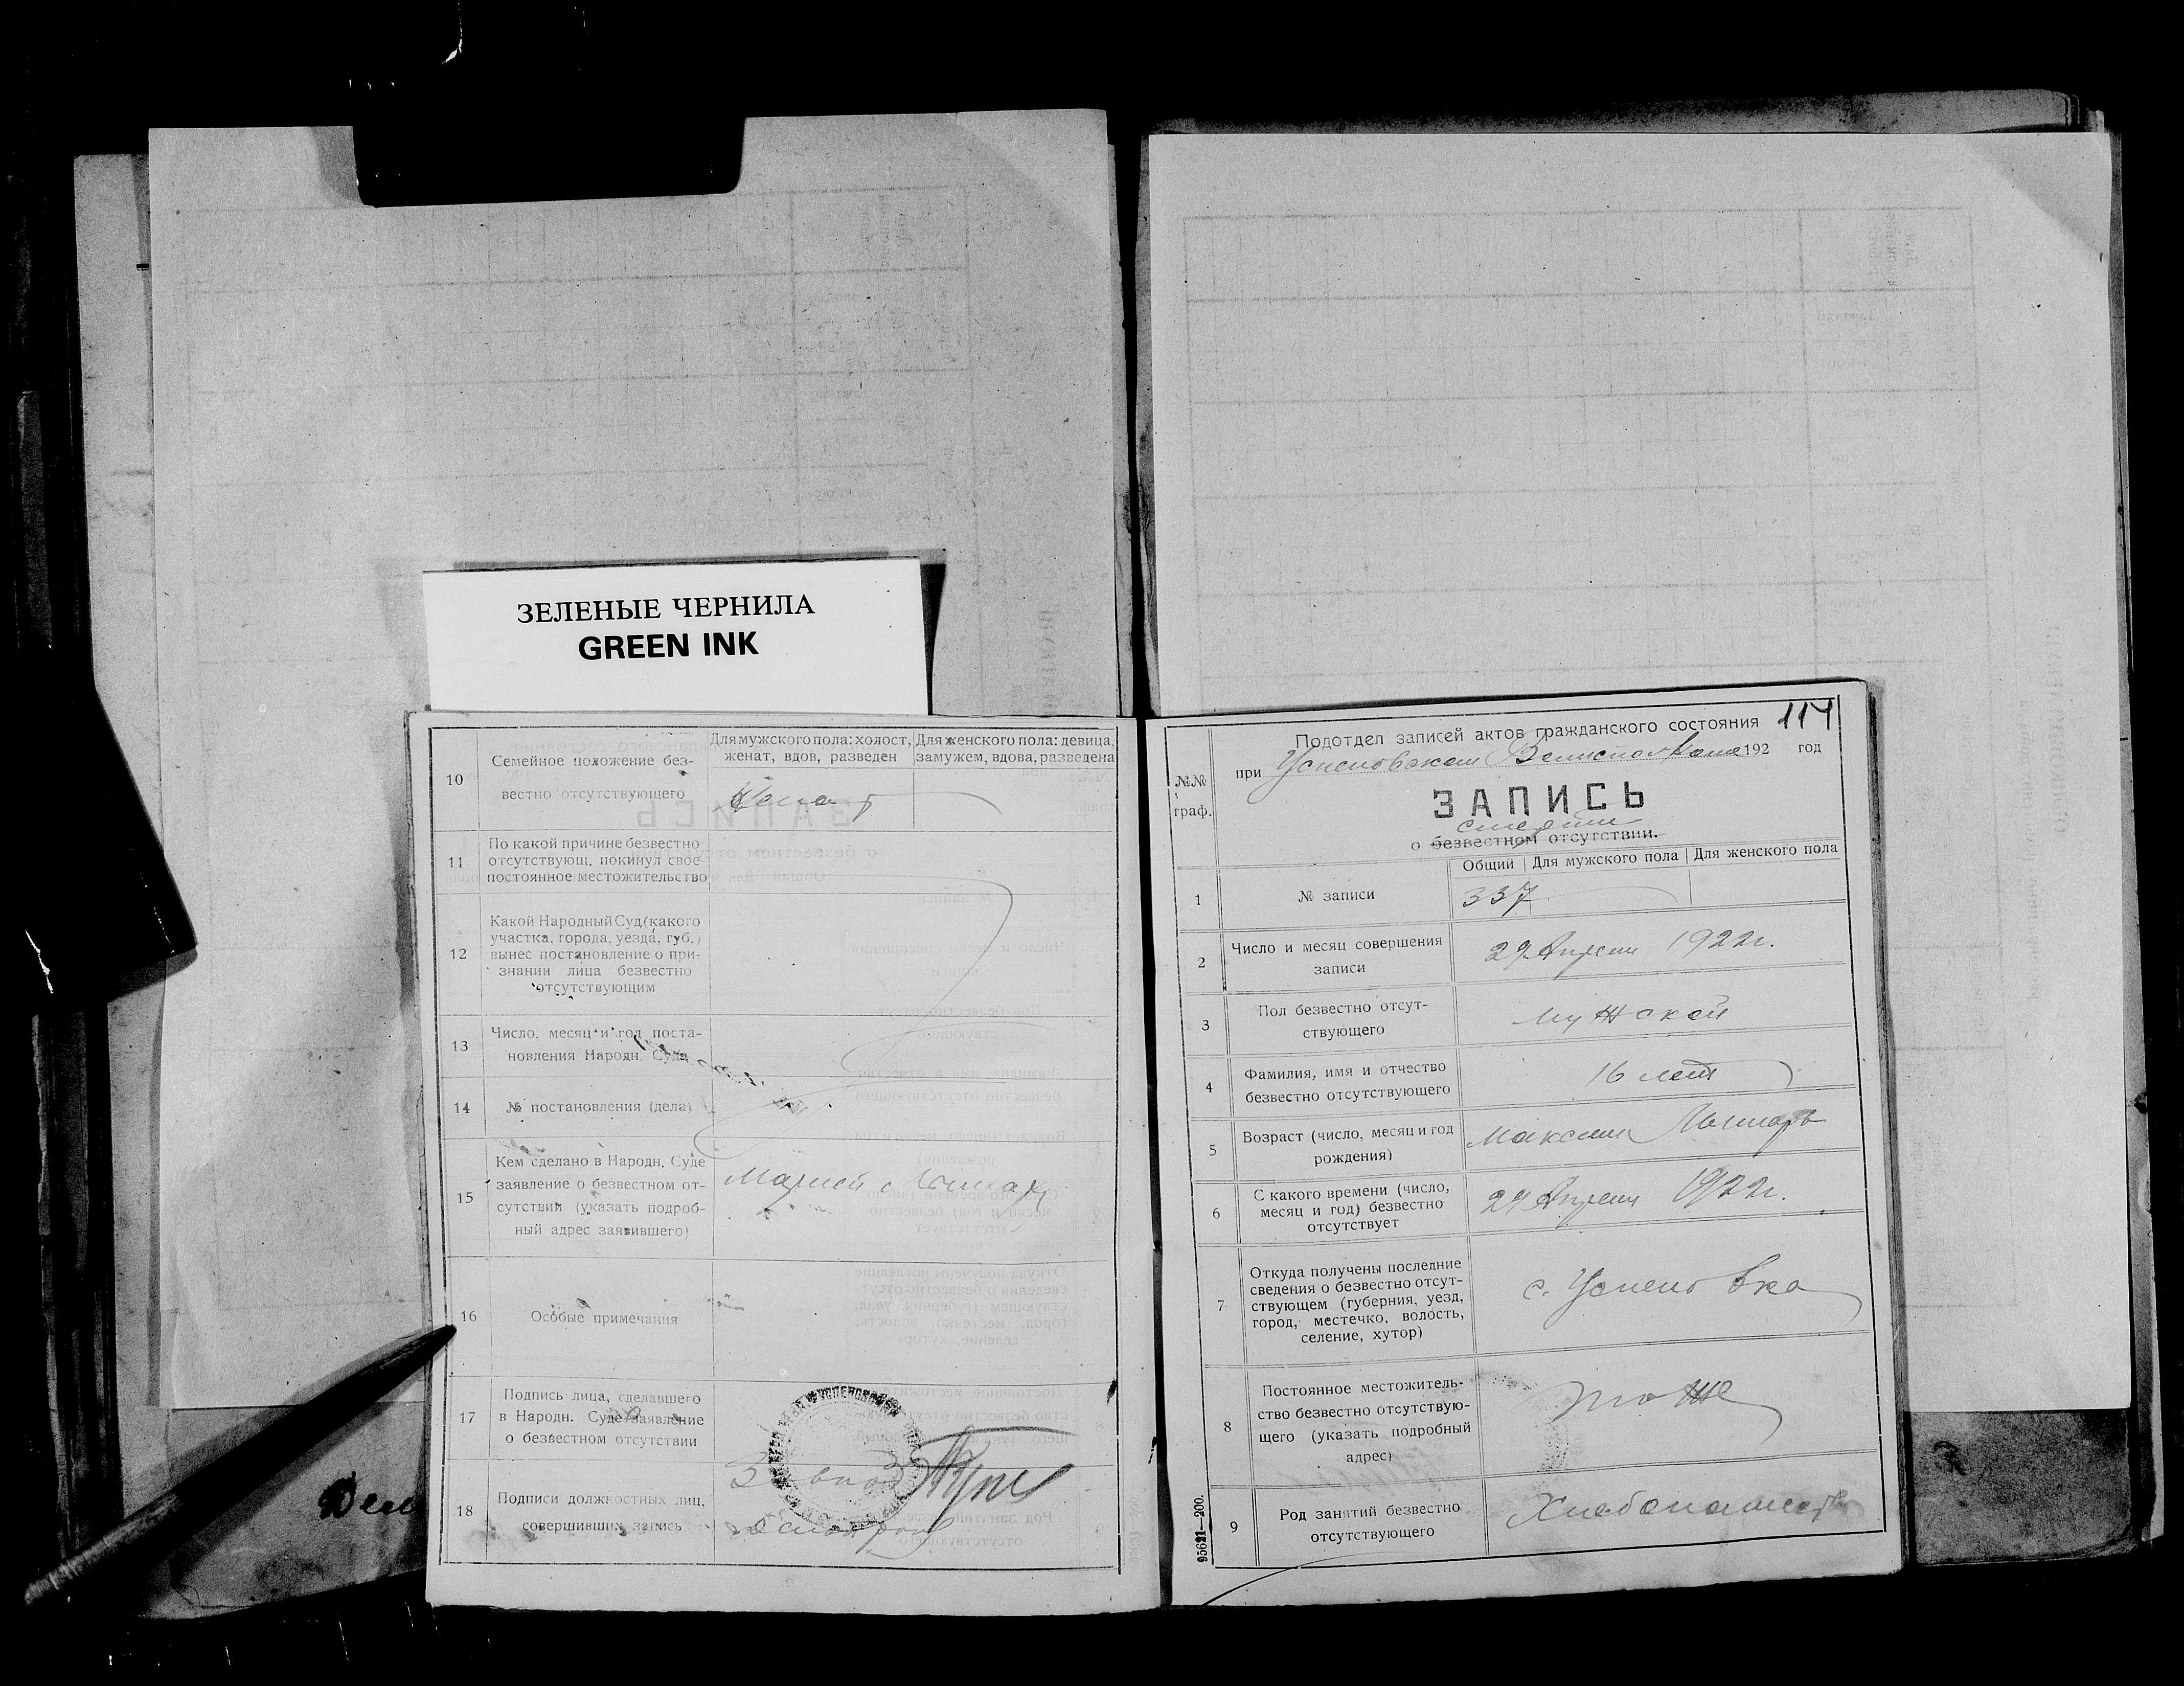 ЗЕЛЕНЫЕ ЧЕРНИЛА
GREEN INK
10
Семейное положение без-
вестно отсутствующего
Для мужского пола: холост,
женат, вдов, разведен
Для женского пола: девица,
замужем, вдова, разведена
Женат
11
По какой причине безвестно
отсутствующ. покинул свое
постоянное местожительство
12
Какой Народный Суд (какого
участка, города, уезда, губ.)
вынес постановление о при-
знании лица безвестно
отсутствующим
13
Число, месяц и год поста-
новления Народн. Суда
14
№ постановления (дела)
15
Кем сделано в Народн. Суде
заявление о безвестном от-
сутствии (указать подроб-
ный адрес заявившего)
16
Особые примечания
17
Подпись лица, сделавшего
в Народн. Суде заявление
о безвестном отсутствии
18
Подписи должностных лиц,
совершивших запись
114
Подотдел записей актов гражданского состояния
при Успеновском 192 год
№№
граф.
ЗАПИСЬ
смерти
о безвестном отсутствии.
Общий
Для мужского пола
Для женского пола
1
№ записи
337
2
Число и месяц совершения
записи
29 Апреля 1922г.
3
Пол безвестно отсут-
ствующего
мужской
4
Фамилия, имя и отчество
безвестно отсутствующего
16 лет
5
Возраст (число, месяц и год
рождения)
Максим
6
С какого времени (число,
месяц и год) безвестно
отсутствует
29 Апреля 1922г.
7
Откуда получены последние
сведения о безвестно отсут-
ствующем (губерния, уезд,
город, местечко, волость,
селение, хутор)
с. Успеновка
8
Постоянное местожитель-
ство безвестно отсутствую-
щего (указать подробный
адрес)
тоже
9
Род занятий безвестно
отсутствующего
95621—200.